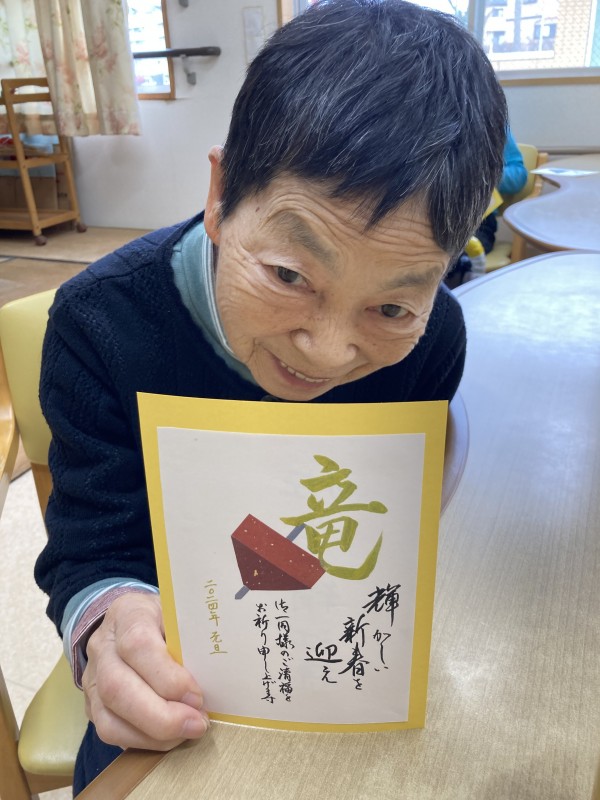 竜
輝かしい
新春を
迎え
御一同様のご清福を
お祈り申し上げます
二〇二四年 元旦